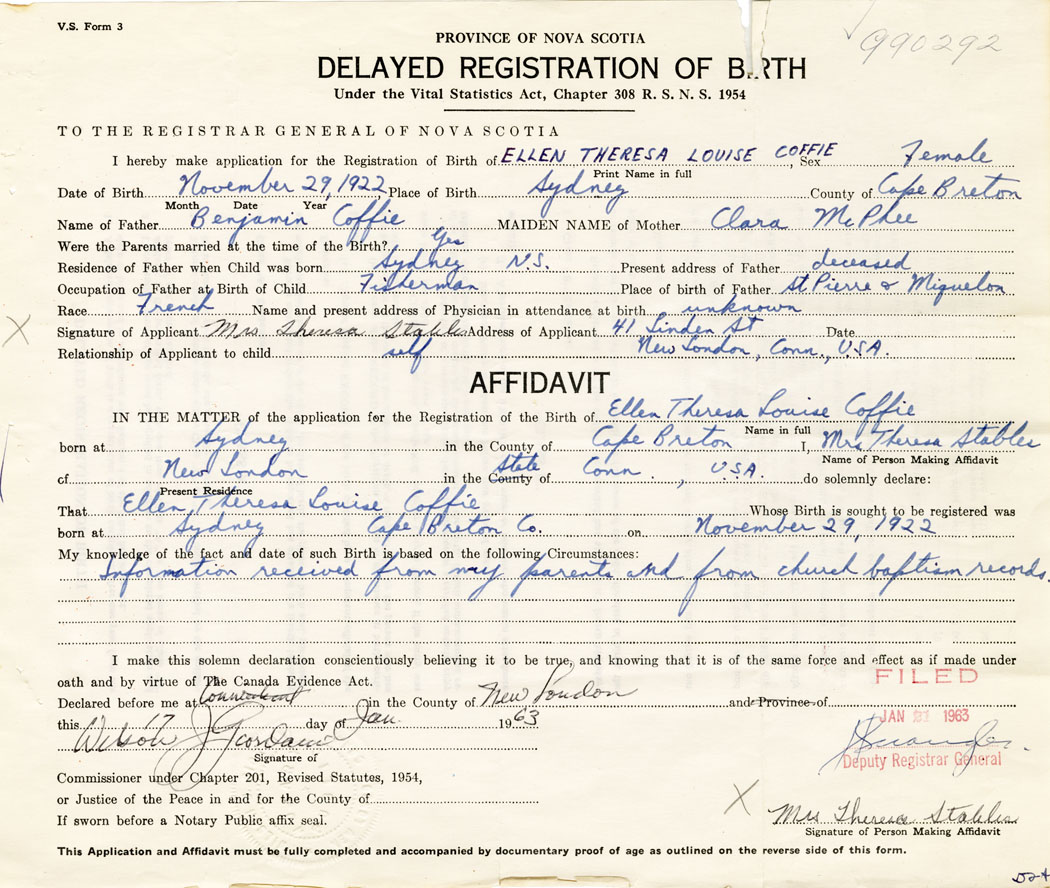 V.S. Form 3
990292
PROVINCE OF NOVA SCOTIA
DELAYED REGISTRATION OF BIRTH
Under the Vital Statistics Act, Chapter 308 R. S. N. S. 1954
TO THE REGISTRAR GENERAL OF NOVA SCOTIA
I hereby make application for the Registration of Birth of ELLEN THERESA LOUISE COFFIE, Sex Female
Print Name in full
Date of Birth November 29, 1922 Place of Birth Sydney County of Cape Breton
Month Date Year
Name of Father Benjamin Coffie MAIDEN NAME of Mother Clara McPhee
Were the Parents married at the time of the Birth? Yes
Residence of Father when Child was born Sydney N.S. Present address of Father deceased
Occupation of Father at Birth of Child Fisherman Place of birth of Father St Pierre & Miquelon
Race French Name and present address of Physician in attendance at birth unknown
X Signature of Applicant Mrs Theresa Stables Address of Applicant 41 Linden St Date
Relationship of Applicant to child self New London, Conn., U.S.A.
AFFIDAVIT
IN THE MATTER of the application for the Registration of the Birth of Ellen Theresa Louise Coffie
Name in full
born at Sydney in the County of Cape Breton I, Mrs Theresa Stables
Name of Person Making Affidavit
of New London in the County of State Conn., U.S.A. do solemnly declare:
Present Residence
That Ellen Theresa Louise Coffie Whose Birth is sought to be registered was
born at Sydney Cape Breton Co. on November 29, 1922
My knowledge of the fact and date of such Birth is based on the following Circumstances:
Information received from my parents and from church baptism records.
I make this solemn declaration conscientiously believing it to be true, and knowing that it is of the same force and effect as if made under
oath and by virtue of The Canada Evidence Act.
FILED
Declared before me at Connecticut in the County of New London and Province of
this 17 day of Jan 1963
JAN 21 1963
Wilson J
Signature of
Deputy Registrar General
Commissioner under Chapter 201, Revised Statutes, 1954,
or Justice of the Peace in and for the County of
If sworn before a Notary Public affix seal.
X Mrs Theresa Stables
Signature of Person Making Affidavit
This Application and Affidavit must be fully completed and accompanied by documentary proof of age as outlined on the reverse side of this form.